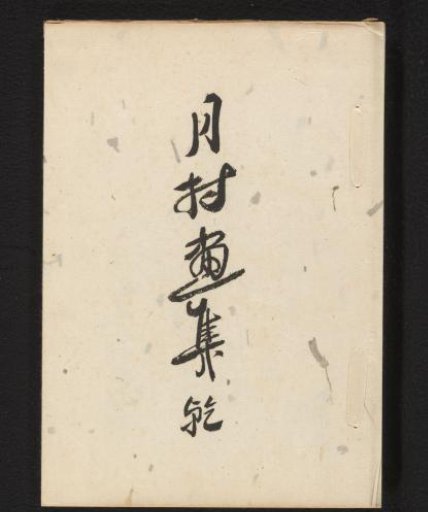 月村畫集 乾